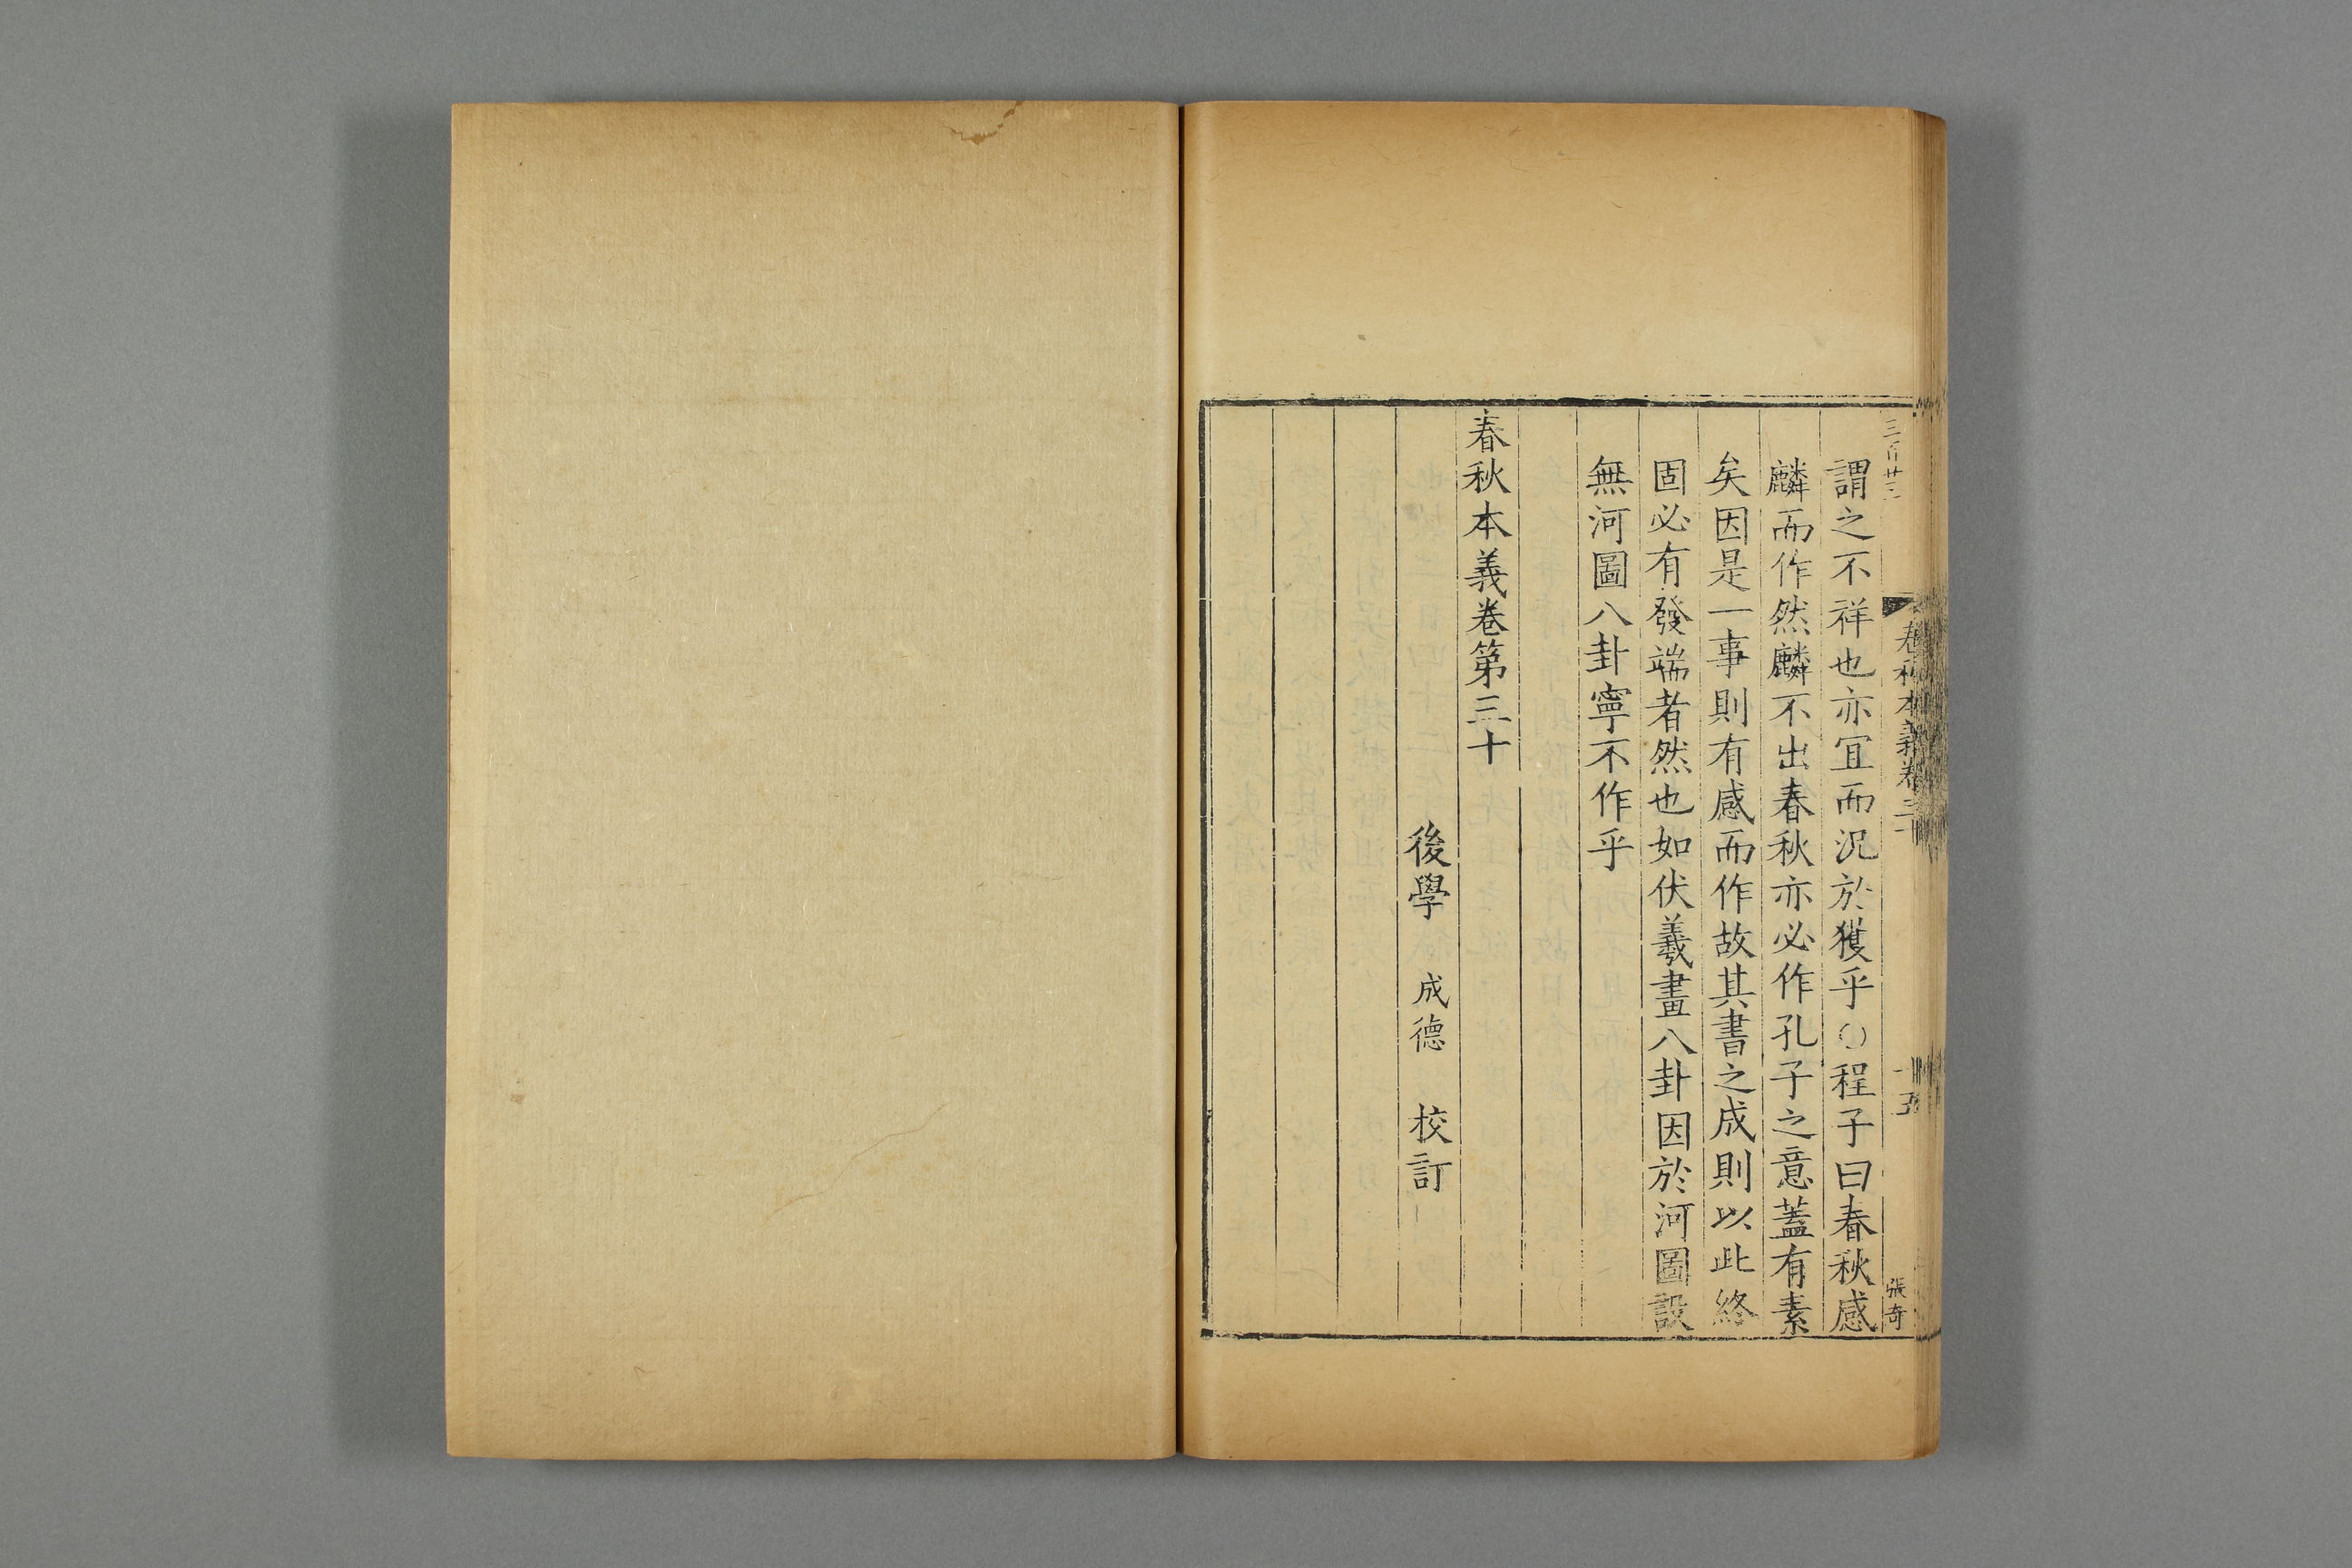 三百廿三
春秋本義卷三十
十五
張奇
謂之不祥也亦宜而況於獲乎○程子曰春秋感
麟而作然麟不出春秋亦必作孔子之意蓋有素
矣因是一事則有感而作故其書之成則以此終
固必有發端者然也如伏羲畫八卦因於河圖設
無河圖八卦寧不作乎
春秋本義卷第三十
後學 成德 校訂